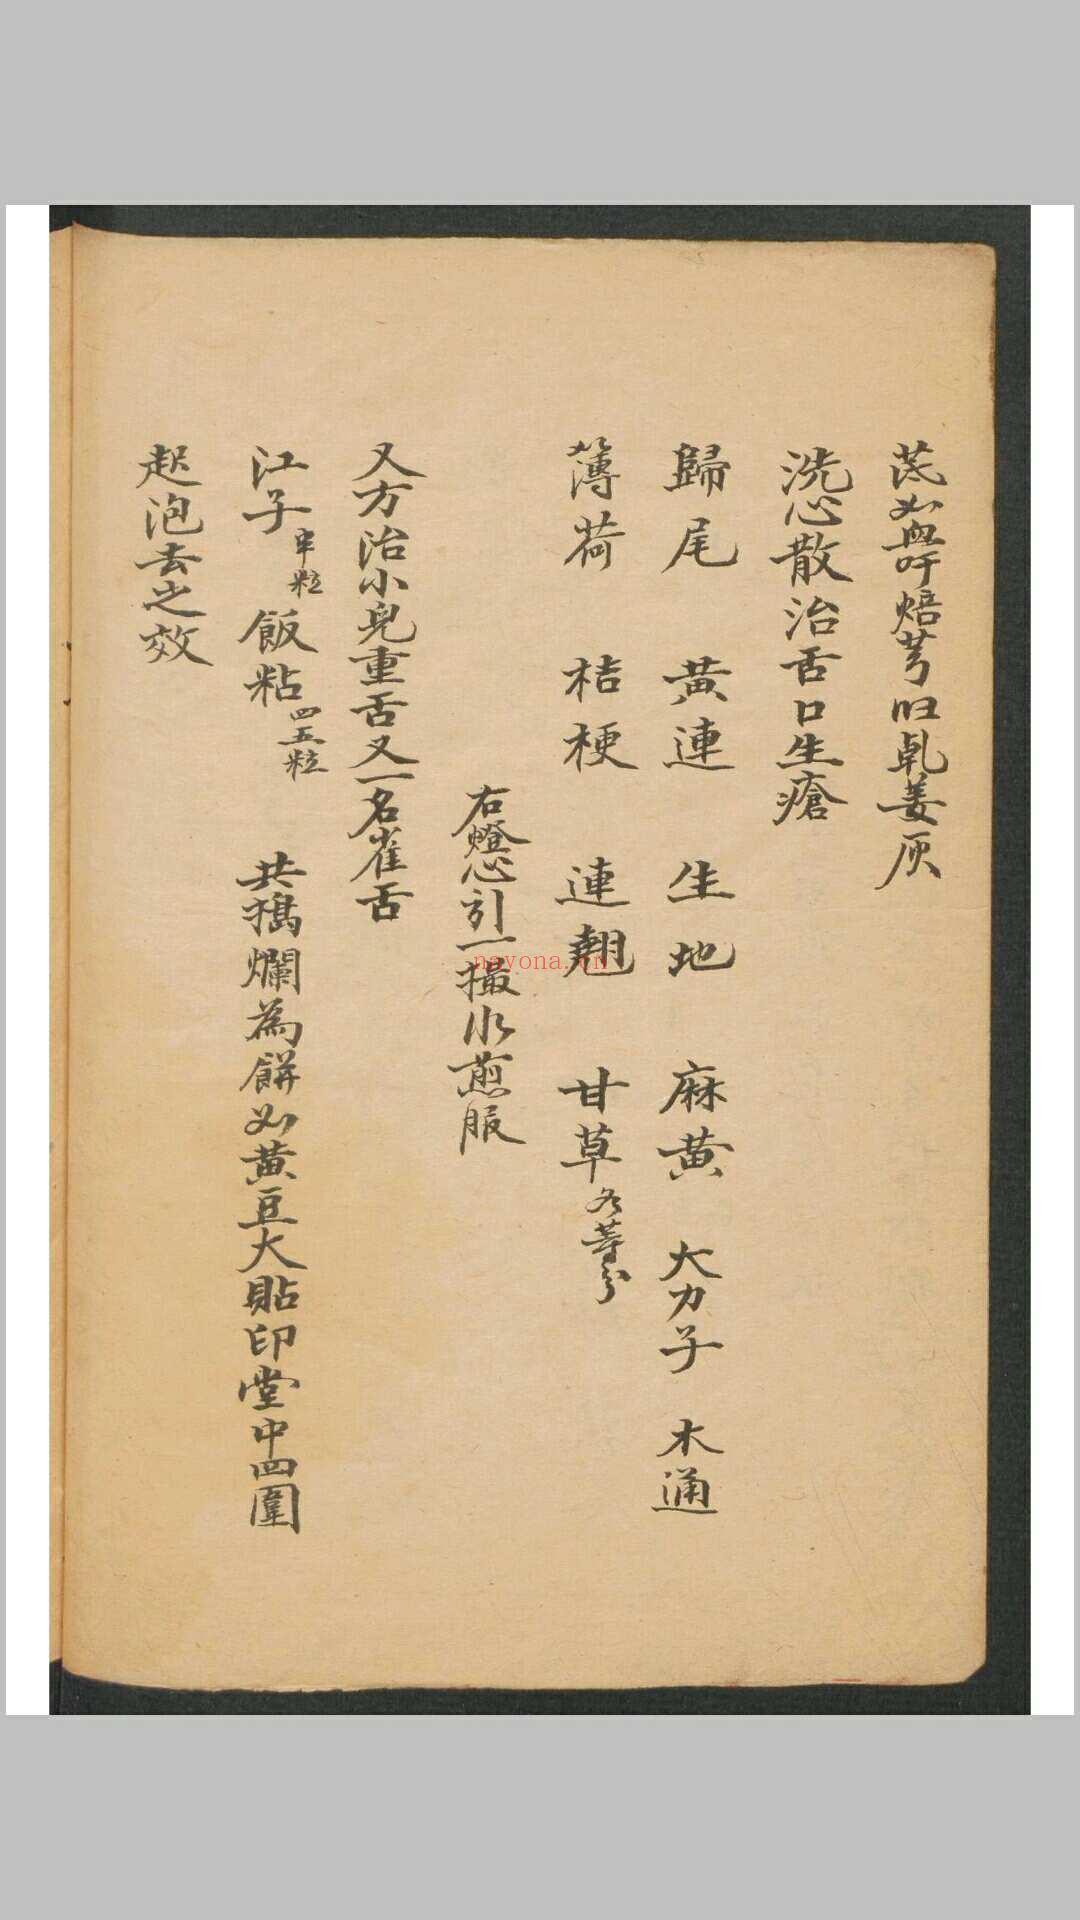 芪如無吁焙芎旧乹姜灰
洗心散治舌口生瘡
歸尾 黄連 生地 麻黄 大力子 木通
薄荷 桔梗 連翹 甘草各等分
右燈心引一撮水煎服
又方治小兒重舌又一名雀舌
江子 粒 飯粘四五粒 共搗爛為餅如黄豆大貼印堂中四圍
起泡去之效
nayona.cn